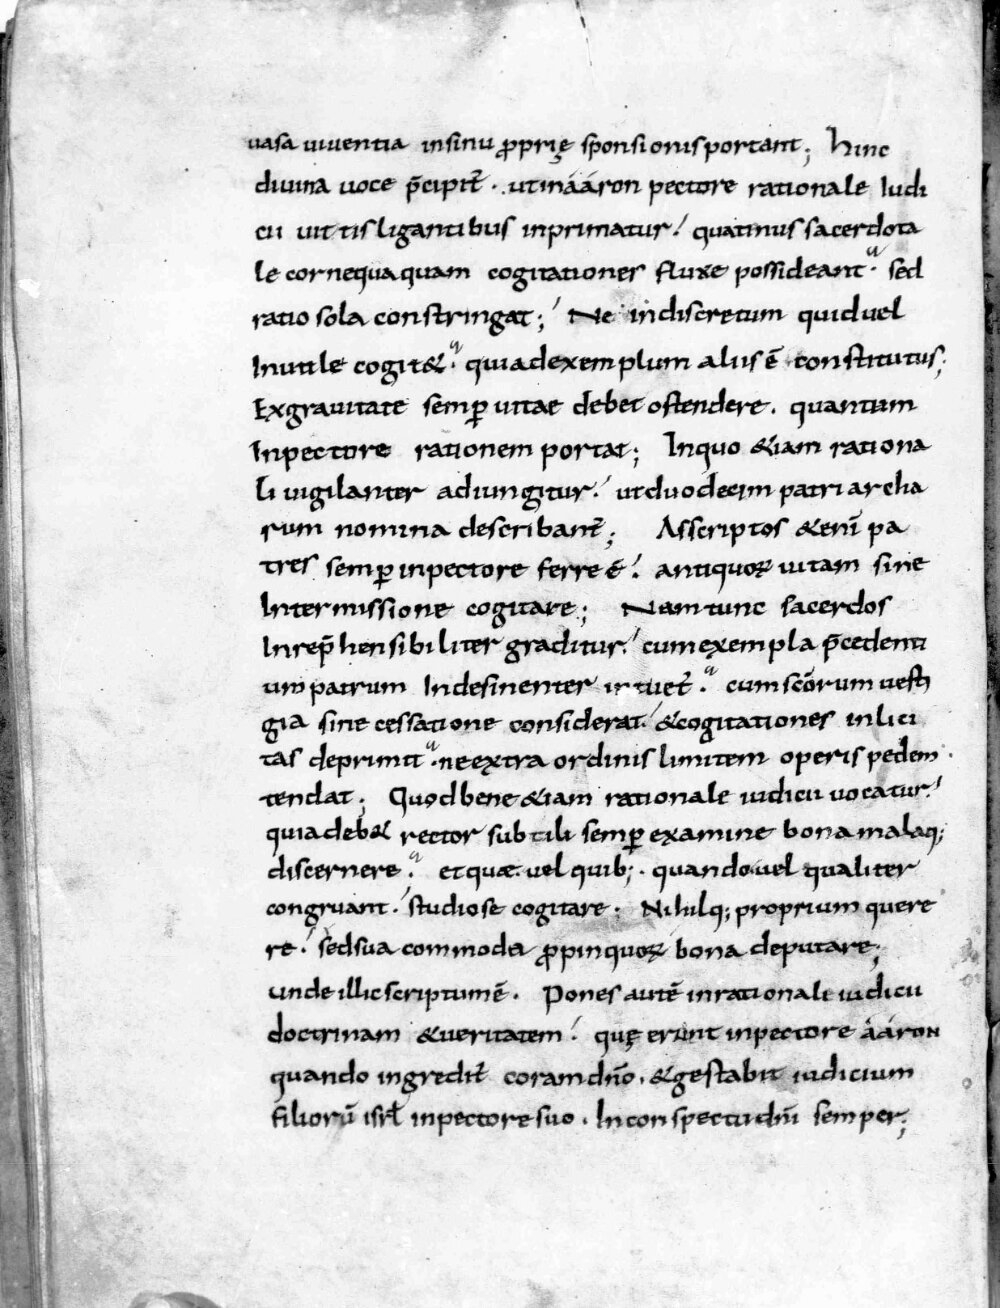 uasa uiuentia insinu ꝓprię sponsionis portant; hinc
diuina uoce p̄cipit̄ · ut in ááron pectore rationale Iudi
cii uittis ligantibus inprimatur! quatinus sacerdota
le cor nequaquam cogitationes fluxe possideant · sed
ratio sola constringat; Ne indiscretum quid uel
Inutile cogit& · quia ad exemplum aliis ē constitutus;
Ex grauitate semꝑ uitae debet ostendere · quantum
Inpectore rationem portat; Inquo &iam rationa
li uigilanter adiungitur! ut duodecim patriarcha
rum nomina describant̄; Asscriptos &enī pa
tres semꝑ inpectore ferre ē! antiquoꝝ uitam sine
Intermissione cogitare; Nam tunc sacerdos
Inrep̄hensibiliter graditur! cum exempla p̄cedenti
um patrum Indesinenter intuet̄ · cum sc̄orum uesti
gia sine cessatione considerat! & cogitationes inlici
tas deprimit · ne extra ordinis limitem operis pedem ·
tendat; Quod bene &iam rationale iudicii uocatur!
quia deb& rector subtili semꝑ examine bona malaq;
discernere · et quæ uel quib; · quando uel qualiter
congruant! studiose cogitare; Nihilq; proprium quere
re! sed sua commoda ꝓpinquoꝝ bona deputare;
unde illic scriptum ē · Pones autē in rationali iudicii
doctrinam & ueritatem! quę erunt inpectore ááron
quando ingredit̄ coram dn̄o · & gestabit iudicium
filiorū isrl̄ inpectore suo · In conspectu dn̄i semper;